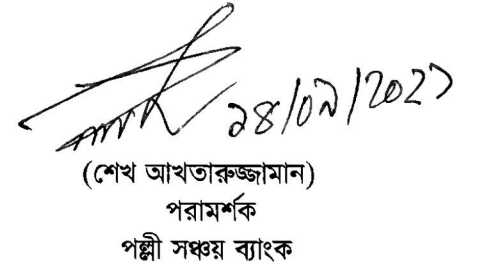 ২৪/০৯/২০২১
(শেখ আখতারুজ্জামান)
পরামর্শক
পল্লী সঞ্চয় ব্যাংক